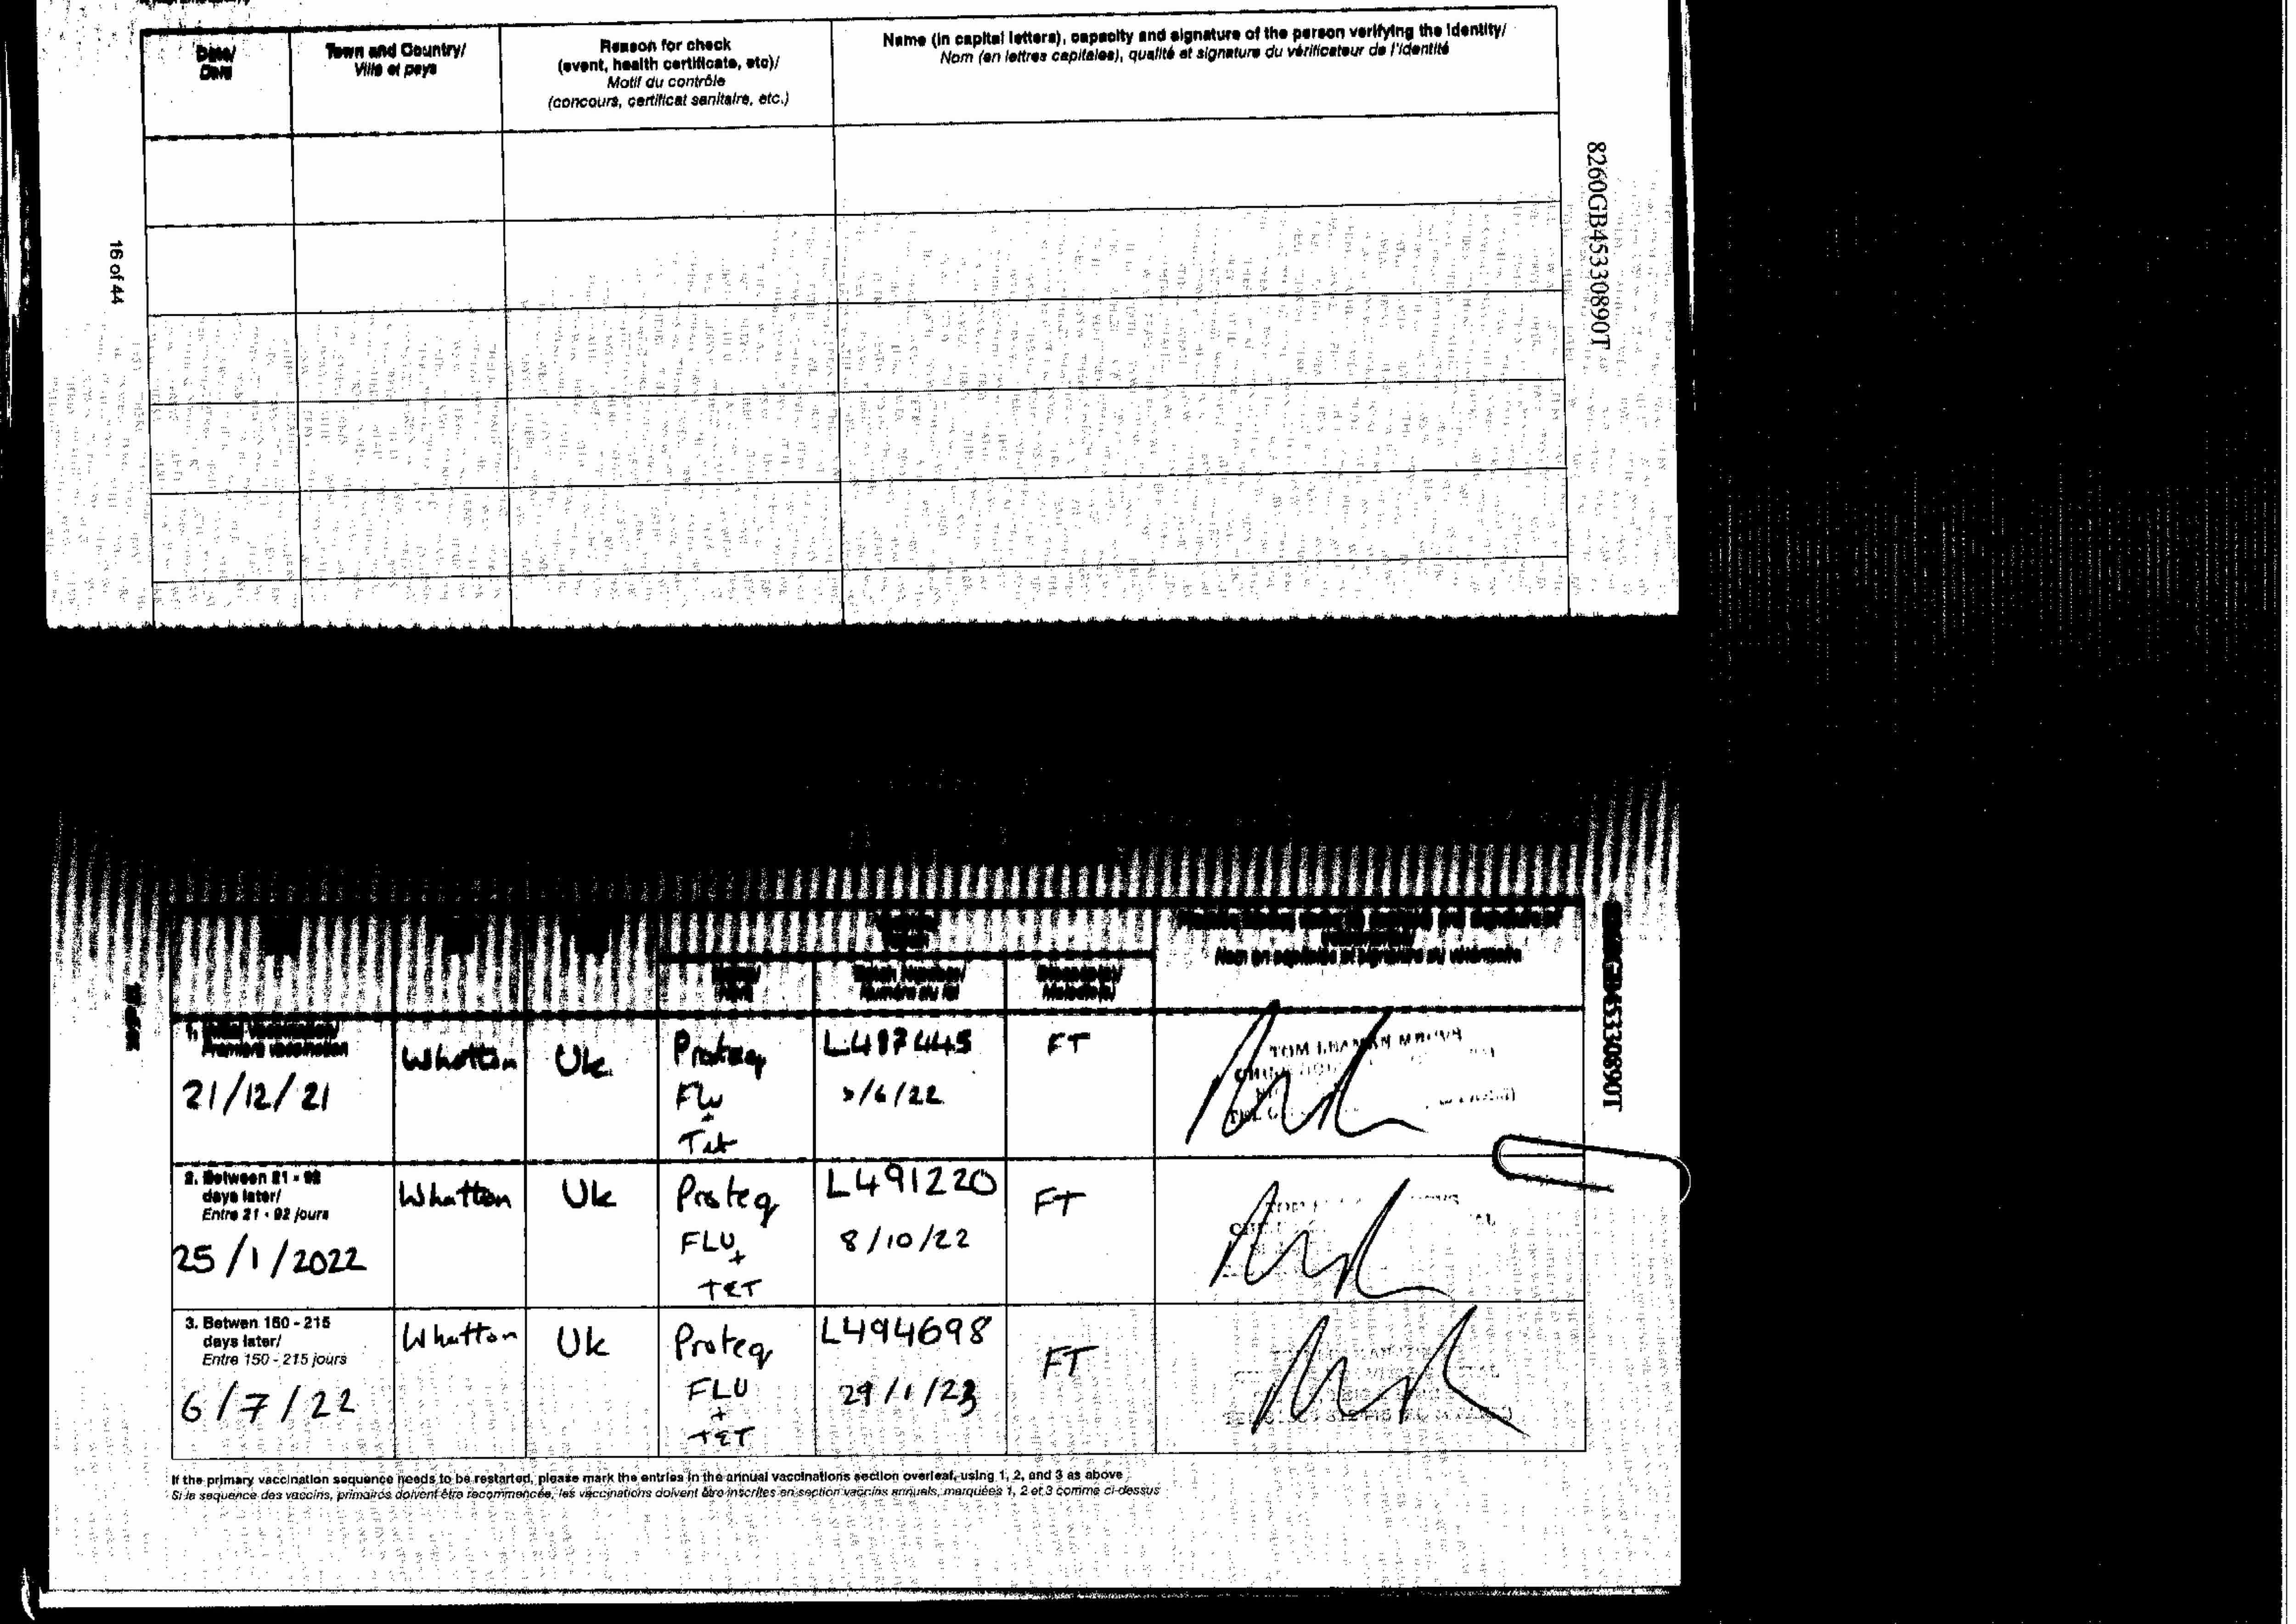 Date/
Date
Town and Country/
Ville et pays
Reason for check
(event, health certificate, etc)/
Motif du contrôle
(concours, certificat sanitaire, etc.)
Name (in capital letters), capacity and signature of the person verifying the identity/
Nom (en lettres capitales), qualité et signature du vérificateur de l'identité
16 of 44
8260GB45330890T
Numéro du lot
Première vaccination
21/12/21
Whatton
Uk
Proteq
Flu
+
Tet
/6/22
FT
2. Between 21 - 92
days later/
Entre 21 - 92 jours
25/1/2022
Whatton
Uk
Proteq
FLU
+
TET
L491220
8/10/22
FT
3. Betwen 150 - 215
days later/
Entre 150 - 215 jours
6/7/22
Whatton
Uk
Proteq
FLU
+
TET
L494698
29/1/23
FT
If the primary vaccination sequence needs to be restarted, please mark the entries in the annual vaccinations section overleaf, using 1, 2, and 3 as above
Si la sequence des vaccins, primaires doivent être recommencée, les vaccinations doivent être inscrites en section vaccins annuels, marquées 1, 2 et 3 comme ci-dessus